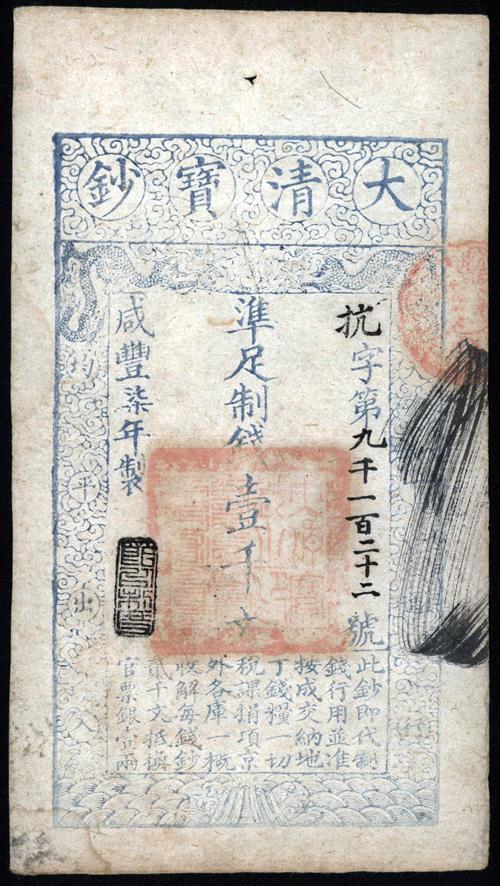 大清寶鈔
天通行
抗字第九千一百二十二號
準足制錢壹千文
咸豐柒年製
均平出入
此鈔即代制
錢行用並准
按成交納地
丁錢糧一切
稅課捐項京
外各庫一概
收解每錢鈔
貳千文抵換
官票銀壹兩